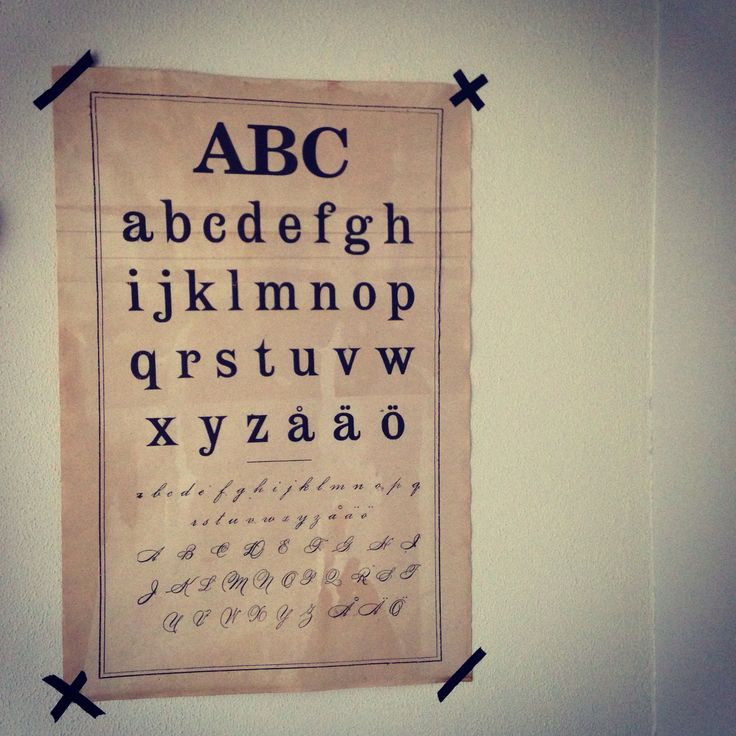 ABC
a b c d e f g h
i j k l m n o p
q r s t u v w
x y z å ä ö
a b c d e f g h i j k l m n o p q
r s t u v w x y z å ä ö
A B C D E F G H I
J K L M N O P Q R S T
U V W X Y Z Å Ä Ö